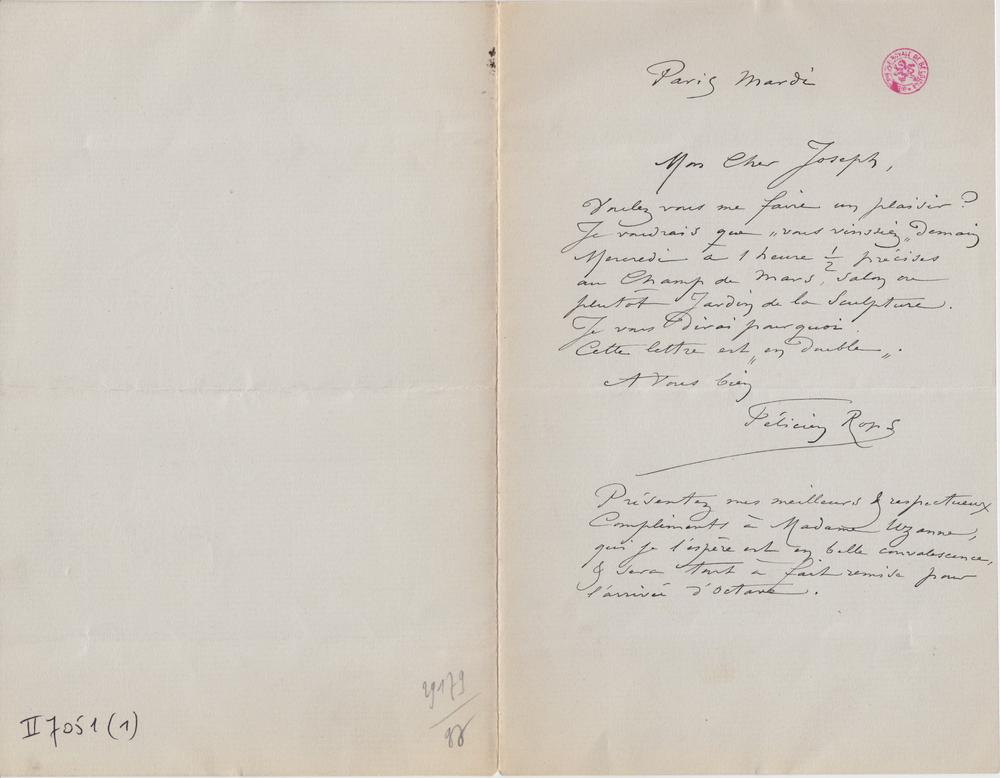 II 7051 (1)
29179
Paris Mardi
Mon Cher Joseph,
Voulez vous me faire un plaisir ?
Je voudrais que „vous vinssiez„ demain
Mercredi à 1 heure ½ précises
au Champ de Mars, Salon ou
plutôt Jardin de la Sculpture.
Je vous dirai pourquoi.
Cette lettre est „en double„.
A Vous bien
Félicien Rops
Présentez mes meilleurs & respectueux
Compliments à Madame Uzanne,
qui je l'espère est en belle convalescence,
& sera tout à fait remise pour
l'arrivée d'Octave.